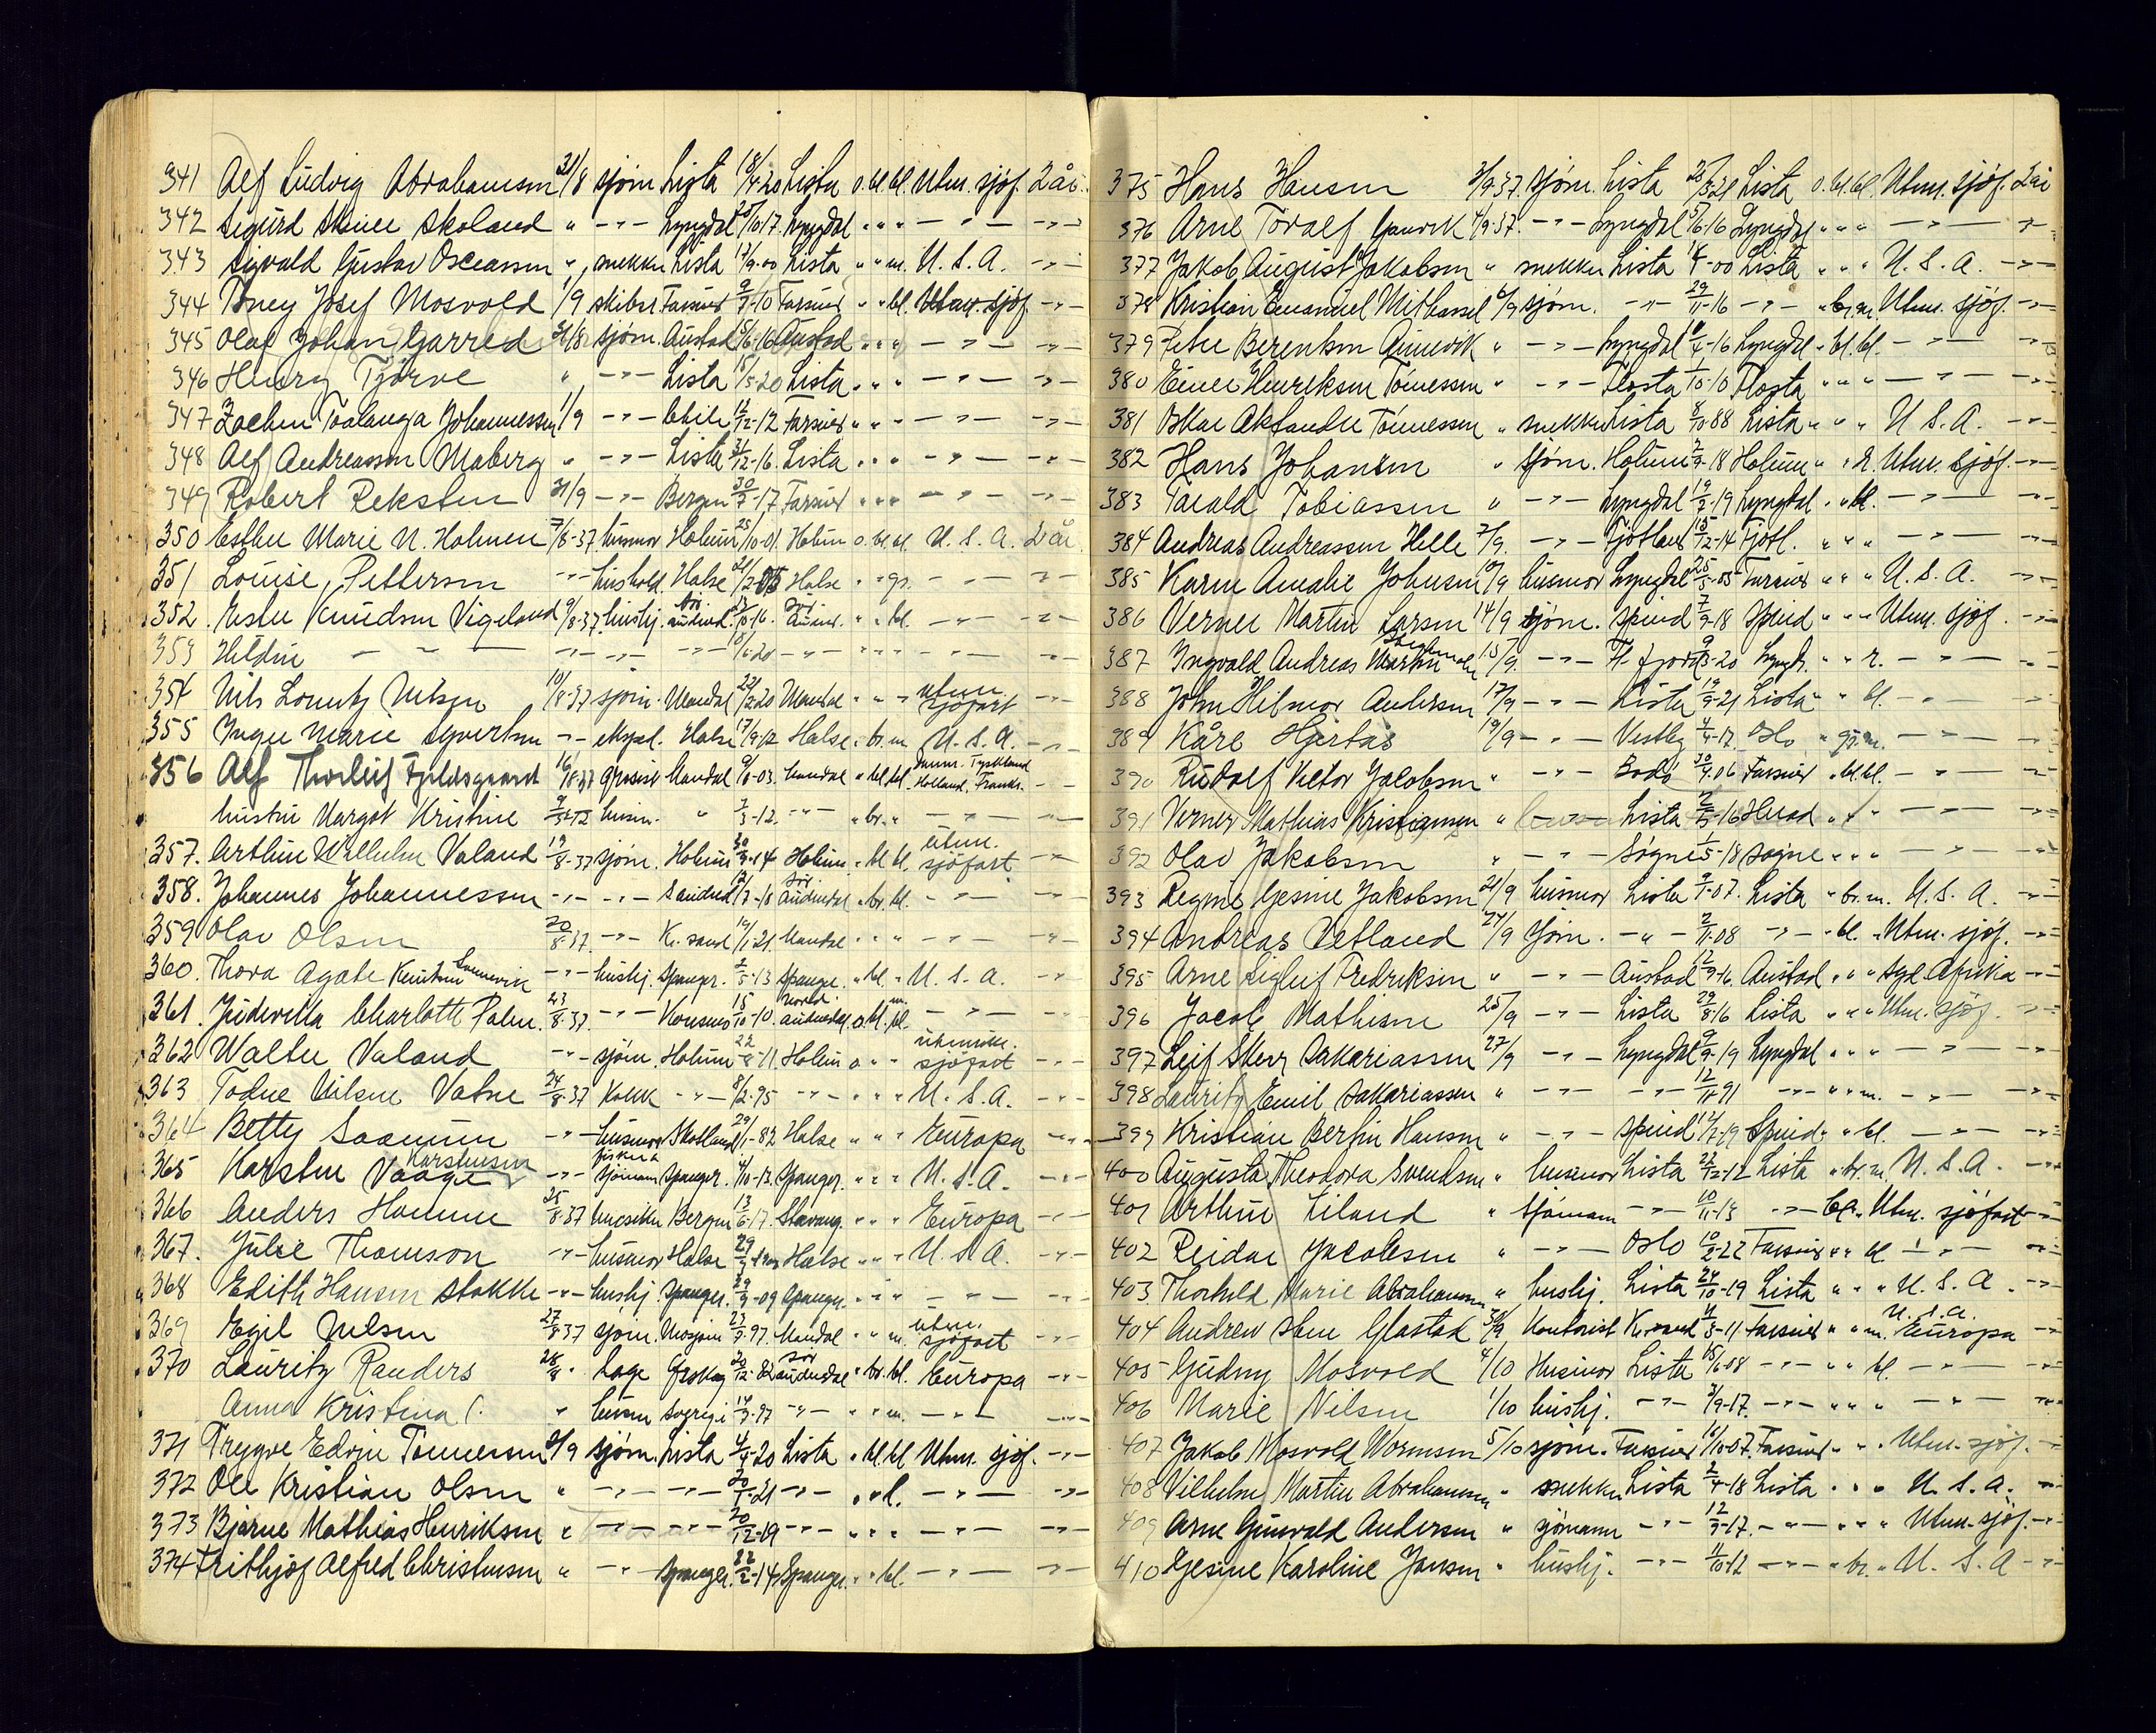 341 Alf Ludvig Abrahamsen 31/8 sjøm. Lista 18/4-20 Lista o. bl. bl. Uten. sjøf. 2 år.
342 Sigurd Skoland " -"- Lyngdal 25/10-17 Lyngdal " " " -"- -"-
343 Sigvald Gustav " snekker Lista 17/9-00 Lista " " m. U.S.A. -"-
344 Josef Mosvold 1/9 Farsund Farsund " " bl. Uten. sjøf. -"-
345 Olaf Johan Garred 31/8 sjøm. Austad 5/6-16 Austad " " " -"- -"-
346 Henry Tjørve " -"- Lista 15/5-20 Lista " " " -"- -"-
347 Johannessen 1/9 -"- Chile 12/2-12 Farsund " " " -"- -"-
348 Alf Andreassen Maberg " -"- Lista 31/12-16 Lista " " " -"- -"-
349 Robert Reksten 31/9 -"- Bergen 30/7-17 Farsund " " " -"- -"-
350 Esther Marie N. Holmen 7/8-37 husmor Holum 25/10-01 Holum o. bl. bl. U.S.A. 2 år
351 Louise Pettersen -"- hushold. Halse Halse " " gr. -"- -"-
352. Ester Knudsen Vigeland 9/8-37 hushj. " " bl. -"- -"-
353 -"- -"- -"- -"- -"- " " " -"- -"-
354 Nils Lorentz Nilsen 10/8-37 sjøm. Mandal 22/2-20 Mandal " " " uten. sjøfart -"-
355 Inger Marie Syvertsen -"- eksped. Halse 17/9-12 Halse " br. m. U.S.A. -"-
356 Alf Thorleif 16/8-37 Mandal 9/6-03 Mandal " bl. bl. Danm. Tyskland Holland, Frankr. -"-
hustru Margot Kristine husm. " 7/3-12 -"- " br. " -"- -"-
357. Arthur Wilhelm Valand 19/8-37 sjøm. Holum 30/9-14 Holum " bl. bl. uten. sjøfart. -"-
358. Johannes Johannessen -"- -"- S. audnedal " br. bl. -"- -"-
359 Olav Olsen 20/8-37 -"- Kr. sand 19/1-21 Mandal " " " -"- -"-
360. Thora Agate Knutsen -"- hushj. Spanger. 2/5-13 Spanger. " bl. " U.S.A. -"-
361. Charlotte 23/8-37 -"- Konsmo 15/10-10 nord. audnedal o. bl. bl. -"- -"-
362 Walter Valand -"- sjøm. Holum 22/8-11 Holum o. " " utenriks. sjøfart -"-
363 Vatne 24/8-37 Kokk -"- 8/2-95 -"- " " " U.S.A. -"-
364 Betty Saanum -"- husmor Skotland 29/1-82 Halse " " " Europa -"-
365 Karsten Karstensen Vaage -"- fisker & sjømann Spanger. 4/10-13 Spanger. " " " U.S.A. -"-
366 Anders Hamme 25/8-37 musiker Bergen 13/6-17 Stavang. " " " Europa -"-
367. Julie Thomson -"- husmor Halse Halse " " " U.S.A. -"-
368 Edith Hansen Stokke -"- hushj. Spanger. 29/9-09 Spanger. " " " -"- -"-
369 Egil Nilsen 27/8-37 sjøm. Mosjøen 23/9-97 Mandal " " m. uten. sjøfart -"-
370 Lauritz Randers 28/8 " 20/12-82 sør audnedal " br. bl. Europa -"-
Anna Kristina C. " husm Sverige 14/3-97 -"- " " m. -"- -"-
371 Trygve Edvin Tønnessen 2/9 sjøm. Lista 4/4-20 Lista " bl. bl. Uten. sjøf. -"-
372 Ole Kristian Olsen " -"- -"- 20/1-21 -"- -"- -"-
373 Bjarne Mathias Henriksen " -"- -"- 20/12-19 -"- " " " -"- -"-
374 Frithjof Alfred Christensen " -"- Spanger. 22/2-14 Spanger. " " bl. -"- -"-
375 Hans Hansen 2/9-37. sjøm. Lista 25/3-21 Lista o. bl. bl. Uten. sjøf. 2 år
376 Arne Toralf 4/9-37. -"- Lyngdal 5/6-16 Lyngdal " " " -"- -"-
377 Jakob August Jakobsen " snekker Lista 14/4-00 Lista " " " U.S.A. -"-
378 Kristian Emanuel Mithassel 6/9 sjøm. -"- 29/11-16 -"- " br. m. Uten. sjøf. -"-
379 Peter Berentsen " -"- Lyngdal Lyngdal " bl. bl. -"- -"-
380 Einer Henriksen Tønnessen " -"- Flosta 1/10-10 Flosta " " " -"- -"-
381 Oskar Aleksander Tønnessen " snekker Lista 8/10-88 Lista " " " U.S.A. -"-
382 Hans Johansen " sjøm. Holum 2/9-18 Holum " " Uten. sjøf. -"-
383 Tarald Tobiassen " -"- Lyngdal 19/2-19 Lyngdal " " bl. -"- -"-
384 Andreas Andreassen Helle 7/9. -"- Fjotland 15/12-14 Fjotl. " " " -"- -"-
385 Karen Amalie Johnsen 10/9 husmor Lyngdal 25/5-05 Farsund " " " U.S.A. -"-
386 Verner Martin Larsen 14/9 sjøm. Spind 7/9-18 Spind " " " Uten. sjøf. -"-
387 Ingvald Andreas 15/9. -"- Fl. fjord 9/3-20 Lyngd. " " -"- -"-
388 John Hilmar Andersen 17/9 -"- Lista 19/9-21 Lista " " bl. -"- -"-
389 Kåre Hjertås 19/9 -"- Vestby 4/4-12 Oslo " gr. m. -"- -"-
390 Rudolf Victor Jacobsen " -"- Bodø 30/9-06 Farsund " bl. bl. -"- -"-
391 Verner Mathias Kristiansen " Lista 2/5-16 Herad " " " -"- -"-
392 Olav Jakobsen " -"- Søgne 1/5-18 Søgne " " " -"- -"-
393 Regine Gesine Jakobsen 21/9 husmor Lista 9/1-07. Lista " br. m. U.S.A. -"-
394 Andreas Vetland 24/9 sjøm. -"- 2/11-08 -"- " bl. " Uten. sjøf. -"-
395 Arne Sigleif Fredriksen " -"- Austad 12/9-16 Austad " " " Syd Afrika -"-
396 Jacob Mathisen 25/9 -"- Lista 29/8-16 Lista " " " Uten. sjøf. -"-
397 Leif Sakariassen 27/9 -"- Lyngdal 9/9-19 Lyngdal " " " -"- -"-
398 Lauritz Emil Sakariassen " -"- -"- 12/11-91 -"- " " m. -"- -"-
399 Kristian Hansen " -"- Spind 12/7-19 Spind " " bl. -"- -"-
400 Augusta Theodora Svendsen " husmor Lista 22/12-12 Lista " br. m. U.S.A. -"-
401 Arthur Liland " sjømann -"- 10/11-13 -"- Uten. sjøfart -"-
402 Reidar Jacobsen " -"- Oslo 10/2-22 Farsund " " bl. -"- -"-
403. Thorhild Marie Abrahamsen " hushj. Lista 24/10-19 Lista " " " U.S.A. -"-
404 Andrew Glastad Kontorist Kr.sand Farsund " " m. U.S.A. Europa -"-
405 Gudny Mosvold 4/10 Husmor Lista -"- " " bl. -"- -"-
406 Marie Nilsen 1/10 hushj. -"- 3/9-17. -"- " " " -"- -"-
407 Jakob Mosvold Wormsen 5/10 sjøm. Farsund 16/10-07. Farsund " " " Uten. sjøf. -"-
408 Vilhelm Martin Abrahamsen " snekker Lista 2/4-18 Lista " " " U.S.A. -"-
409 Arne Gunvald Andersen " sjømann -"- 12/9-17. -"- " " " Uten. sjøf. -"-
410 Gesine Karoline Jansen " hushj. -"- 11/10-12 -"- " br. " U.S.A -"-